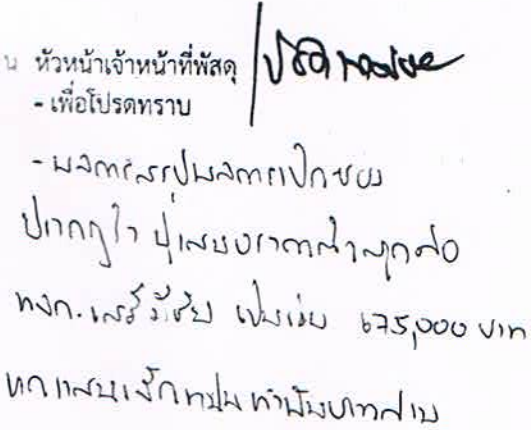 น หัวหน้าเจ้าหน้าที่พัสดุ
- เพื่อโปรดทราบ
- ผลการสรุปผลการเปิดซอง
ปรากฏว่า ผู้เสนอราคาต่ำสุดคือ
หจก. เสรีวิชัย เป็นเงิน 675,000 บาท
หกแสนเจ็ดหมื่นห้าพันบาทถ้วน